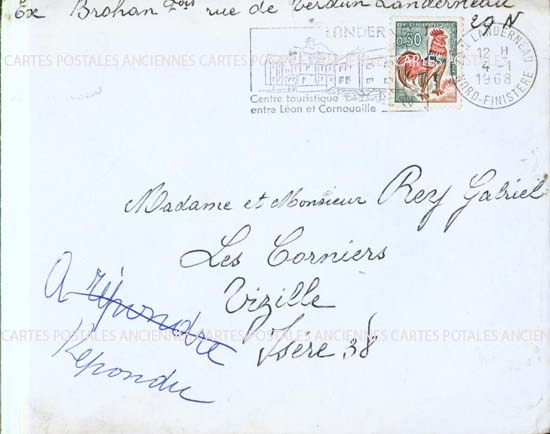 Ex Brohan rue de Verdun Landerneau
29 N
LANDER
0,30
LANDERNEAU
12 H
4-1
1968
NORD-FINISTERE
Centre touristique
entre Léon et Cornouaille
CARTES POSTALES ANCIENNES CARTES POSTALES ANCIENNES CARTES POSTALES ANCIENNES
Madame et Monsieur Rey Gabriel
Les Corniers
Vizille
Isère 38
A répondre
Répondu
CARTES POSTALES ANCIENNES CARTES POSTALES ANCIENNES CARTES POSTALES ANCIENNES